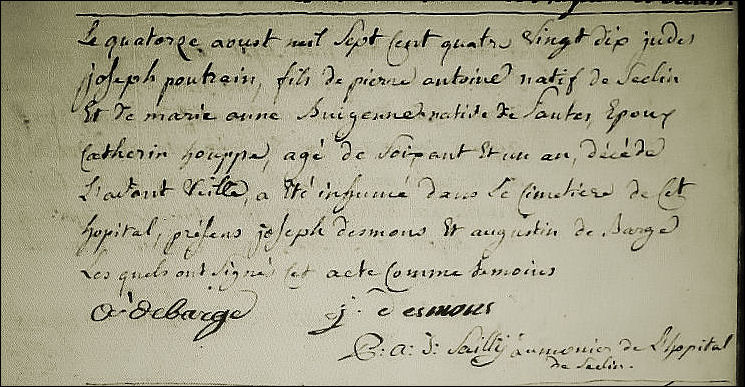 Le quatorze aoust mil Sept Cent quatre Vingt dix judes
joseph poutrain, fils de pierre antoine natif de Seclin
Et de marie anne native de Epoux
Catherin houppe, agé de Soixant Et un an, décéde
L'avant Veille, a Eté inhumé dans Le Cimetiére de Cet
hopital, présens joseph desmons Et augustin de Barge
Lesquels ont Signés Cet acte Comme temoins
A: debarge j. desmons
P: a: j: Sailly aumonier de L'hopital
de Seclin.